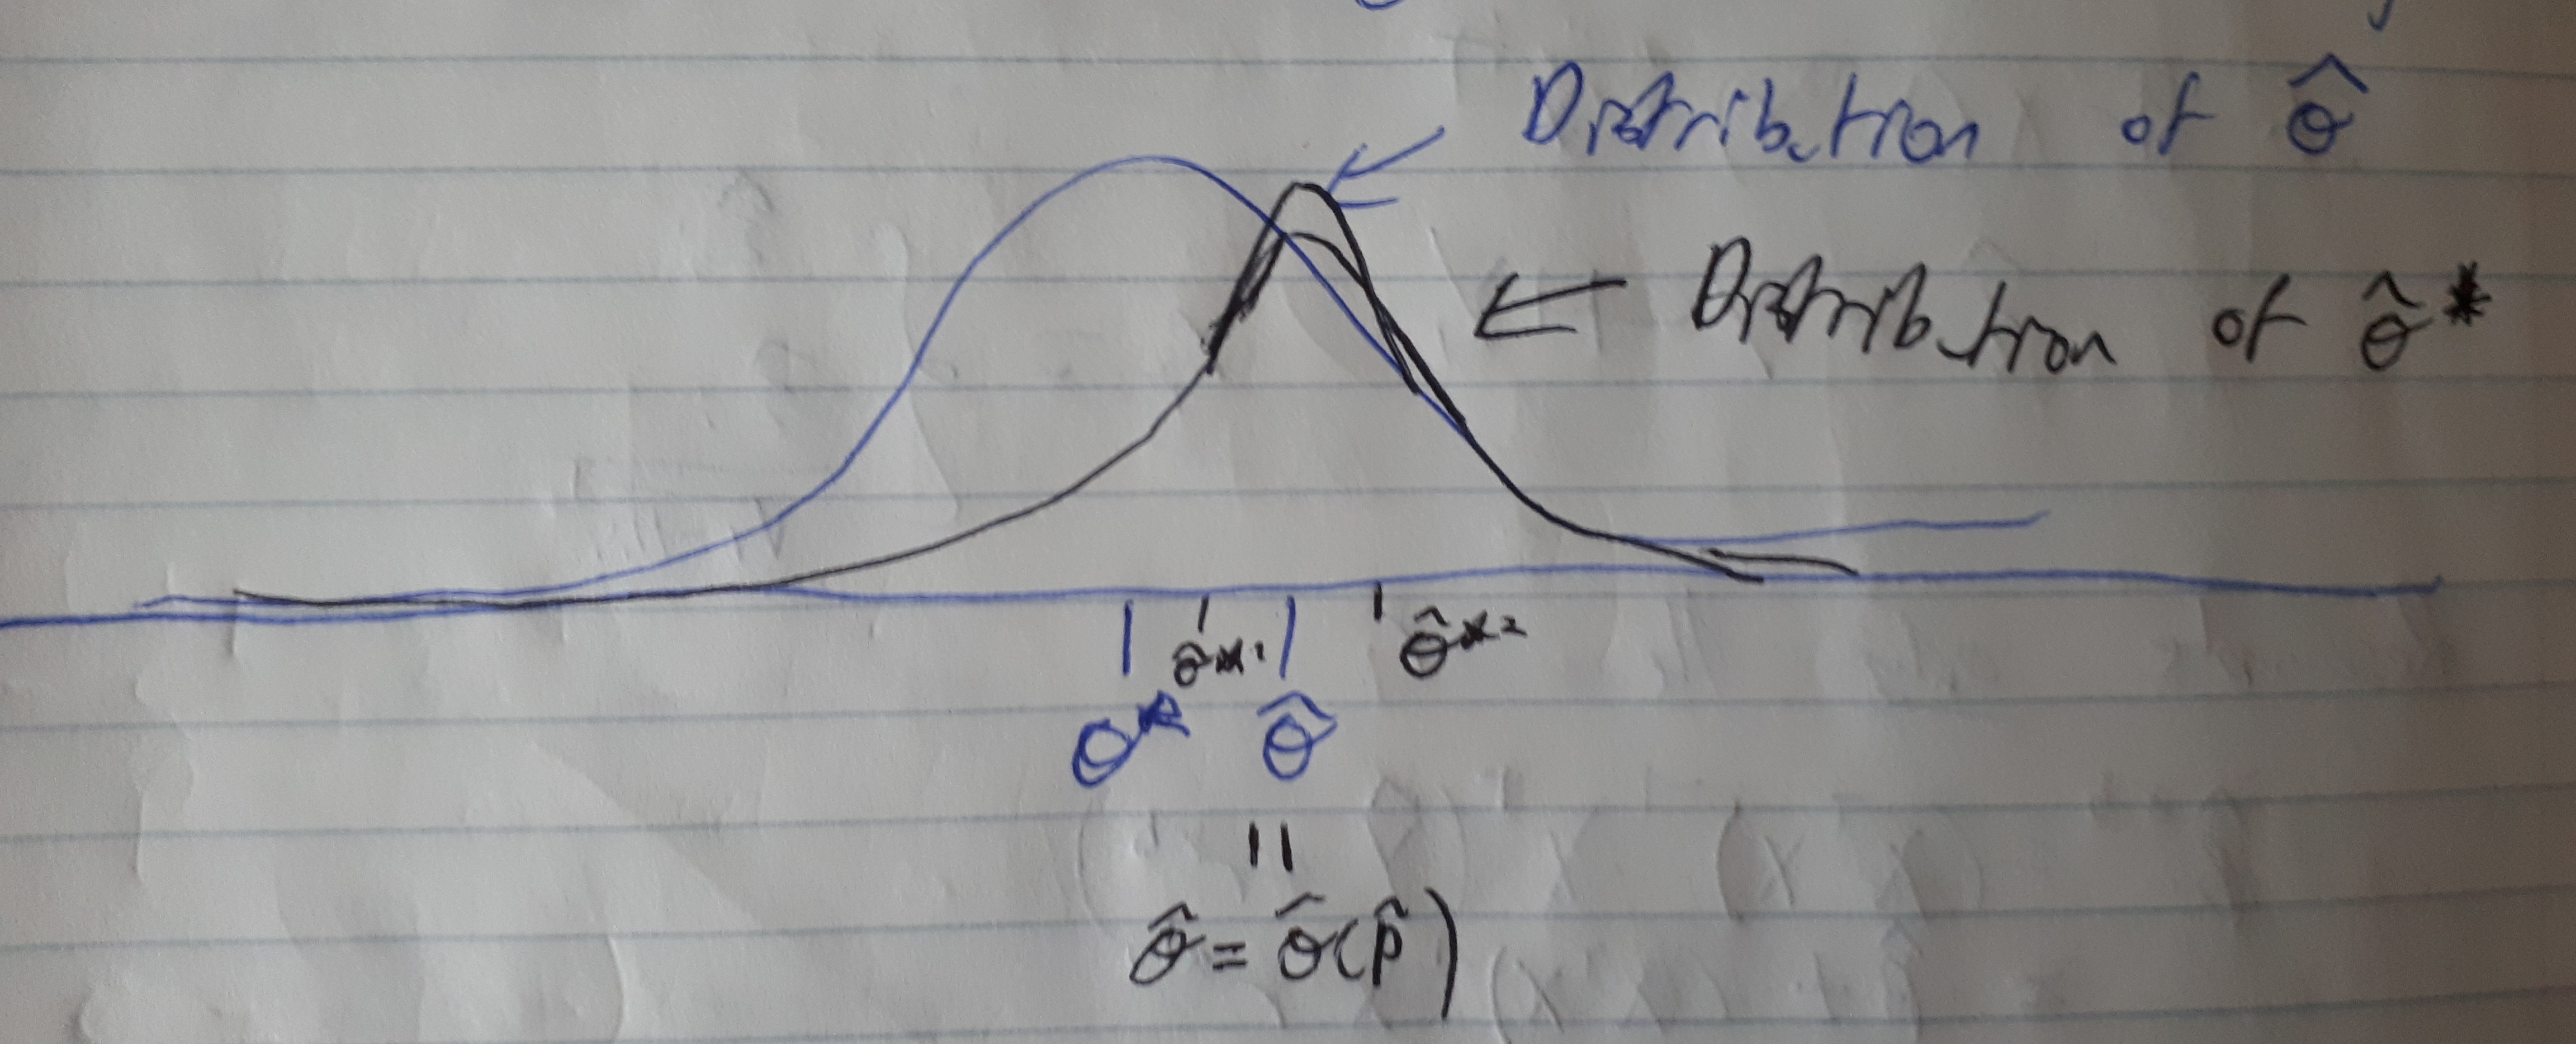 Distribution of θ̂
← Distribution of θ̂*
θ̂*1 θ̂*2
θ* θ̂
||
θ̂ = θ̂(p̂)